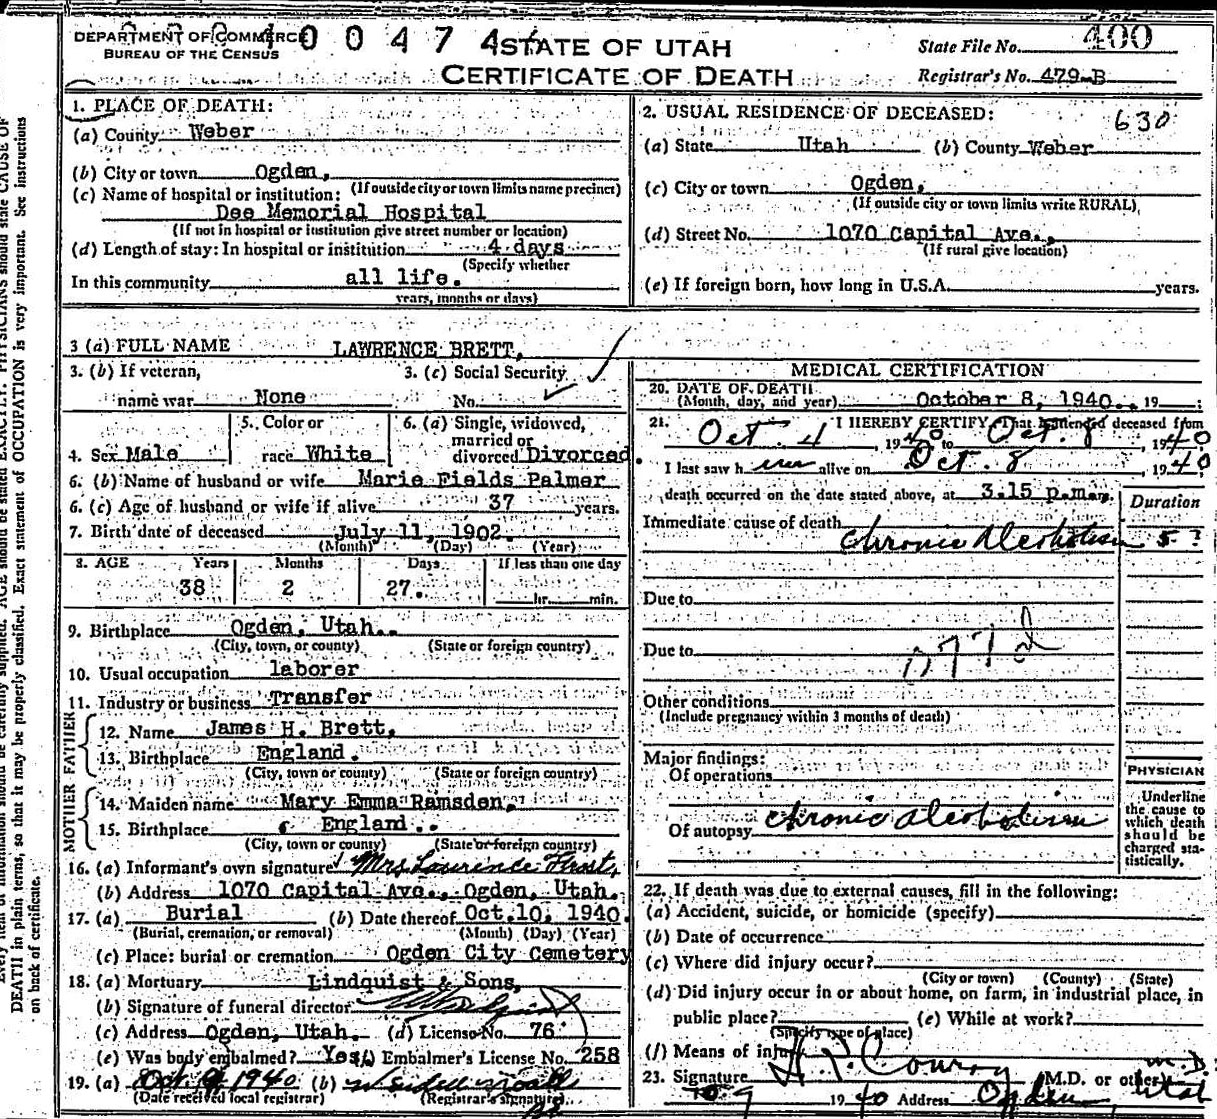 DEPARTMENT OF COMMERCE
BUREAU OF THE CENSUS
400474
STATE OF UTAH
CERTIFICATE OF DEATH
State File No. 400
Registrar's No. 479-B
1. PLACE OF DEATH:
(a) County Weber
(b) City or town Ogden,
(If outside city or town limits name precinct)
(c) Name of hospital or institution:
Dee Memorial Hospital
(If not in hospital or institution give street number or location)
(d) Length of stay: In hospital or institution 4 days
(Specify whether
In this community all life.
years, months or days)
2. USUAL RESIDENCE OF DECEASED:
630
(a) State Utah (b) County Weber
(c) City or town Ogden,
(If outside city or town limits write RURAL)
(d) Street No. 1070 Capital Ave.,
(If rural give location)
(e) If foreign born, how long in U.S.A. years.
3 (a) FULL NAME LAWRENCE BRETT,
3. (b) If veteran,
name war None
3. (c) Social Security
No.
4. Sex Male
5. Color or
race White
6. (a) Single, widowed,
married or
divorced Divorced
6. (b) Name of husband or wife Marie Fields Palmer
6. (c) Age of husband or wife if alive 37 years.
7. Birth date of deceased July 11, 1902.
(Month) (Day) (Year)
8. AGE Years Months Days If less than one day
38 2 27. hr. min.
9. Birthplace Ogden, Utah..
(City, town, or county) (State or foreign country)
10. Usual occupation laborer
11. Industry or business Transfer
FATHER
12. Name James H. Brett,
13. Birthplace England.
(City, town or county) (State or foreign country)
MOTHER
14. Maiden name Mary Emma Ramsden,
15. Birthplace England..
(City, town or county) (State or foreign country)
16. (a) Informant's own signature Mrs Lawrence Frost,
(b) Address 1070 Capital Ave., Ogden, Utah.
17. (a) Burial (b) Date thereof Oct. 10, 1940.
(Burial, cremation, or removal) (Month) (Day) (Year)
(c) Place: burial or cremation Ogden City Cemetery
18. (a) Mortuary Lindquist & Sons,
(b) Signature of funeral director
(c) Address Ogden, Utah. (d) License No. 76
(e) Was body embalmed? Yes Embalmer's License No. 258
19. (a) Oct 9 1940 (b)
(Date received local registrar) (Registrar's signature)
MEDICAL CERTIFICATION
20. DATE OF DEATH
(Month, day, and year) October 8, 1940.. 19
21. I HEREBY CERTIFY, That I attended deceased from
Oct. 4, 1940 to Oct. 8, 1940
I last saw h im alive on Oct. 8 1940
death occurred on the date stated above, at 3.15 p.m.
Duration
Immediate cause of death
Chronic Alcoholism 5 ?
Due to
Due to
077d
Other conditions
(Include pregnancy within 3 months of death)
Major findings:
Of operations
Of autopsy chronic alcoholism
PHYSICIAN
Underline
the cause to
which death
should be
charged sta-
tistically.
22. If death was due to external causes, fill in the following:
(a) Accident, suicide, or homicide (specify)
(b) Date of occurrence
(c) Where did injury occur?
(City or town) (County) (State)
(d) Did injury occur in or about home, on farm, in industrial place, in
public place? (e) While at work?
(Specify type of place)
(f) Means of injury
23. Signature M.D. or other M.D.
10-9 1940 Address Ogden, Utah
DEATH in plain terms, so that it may be properly classified. Exact statement of OCCUPATION is very important. See instructions
on back of certificate.